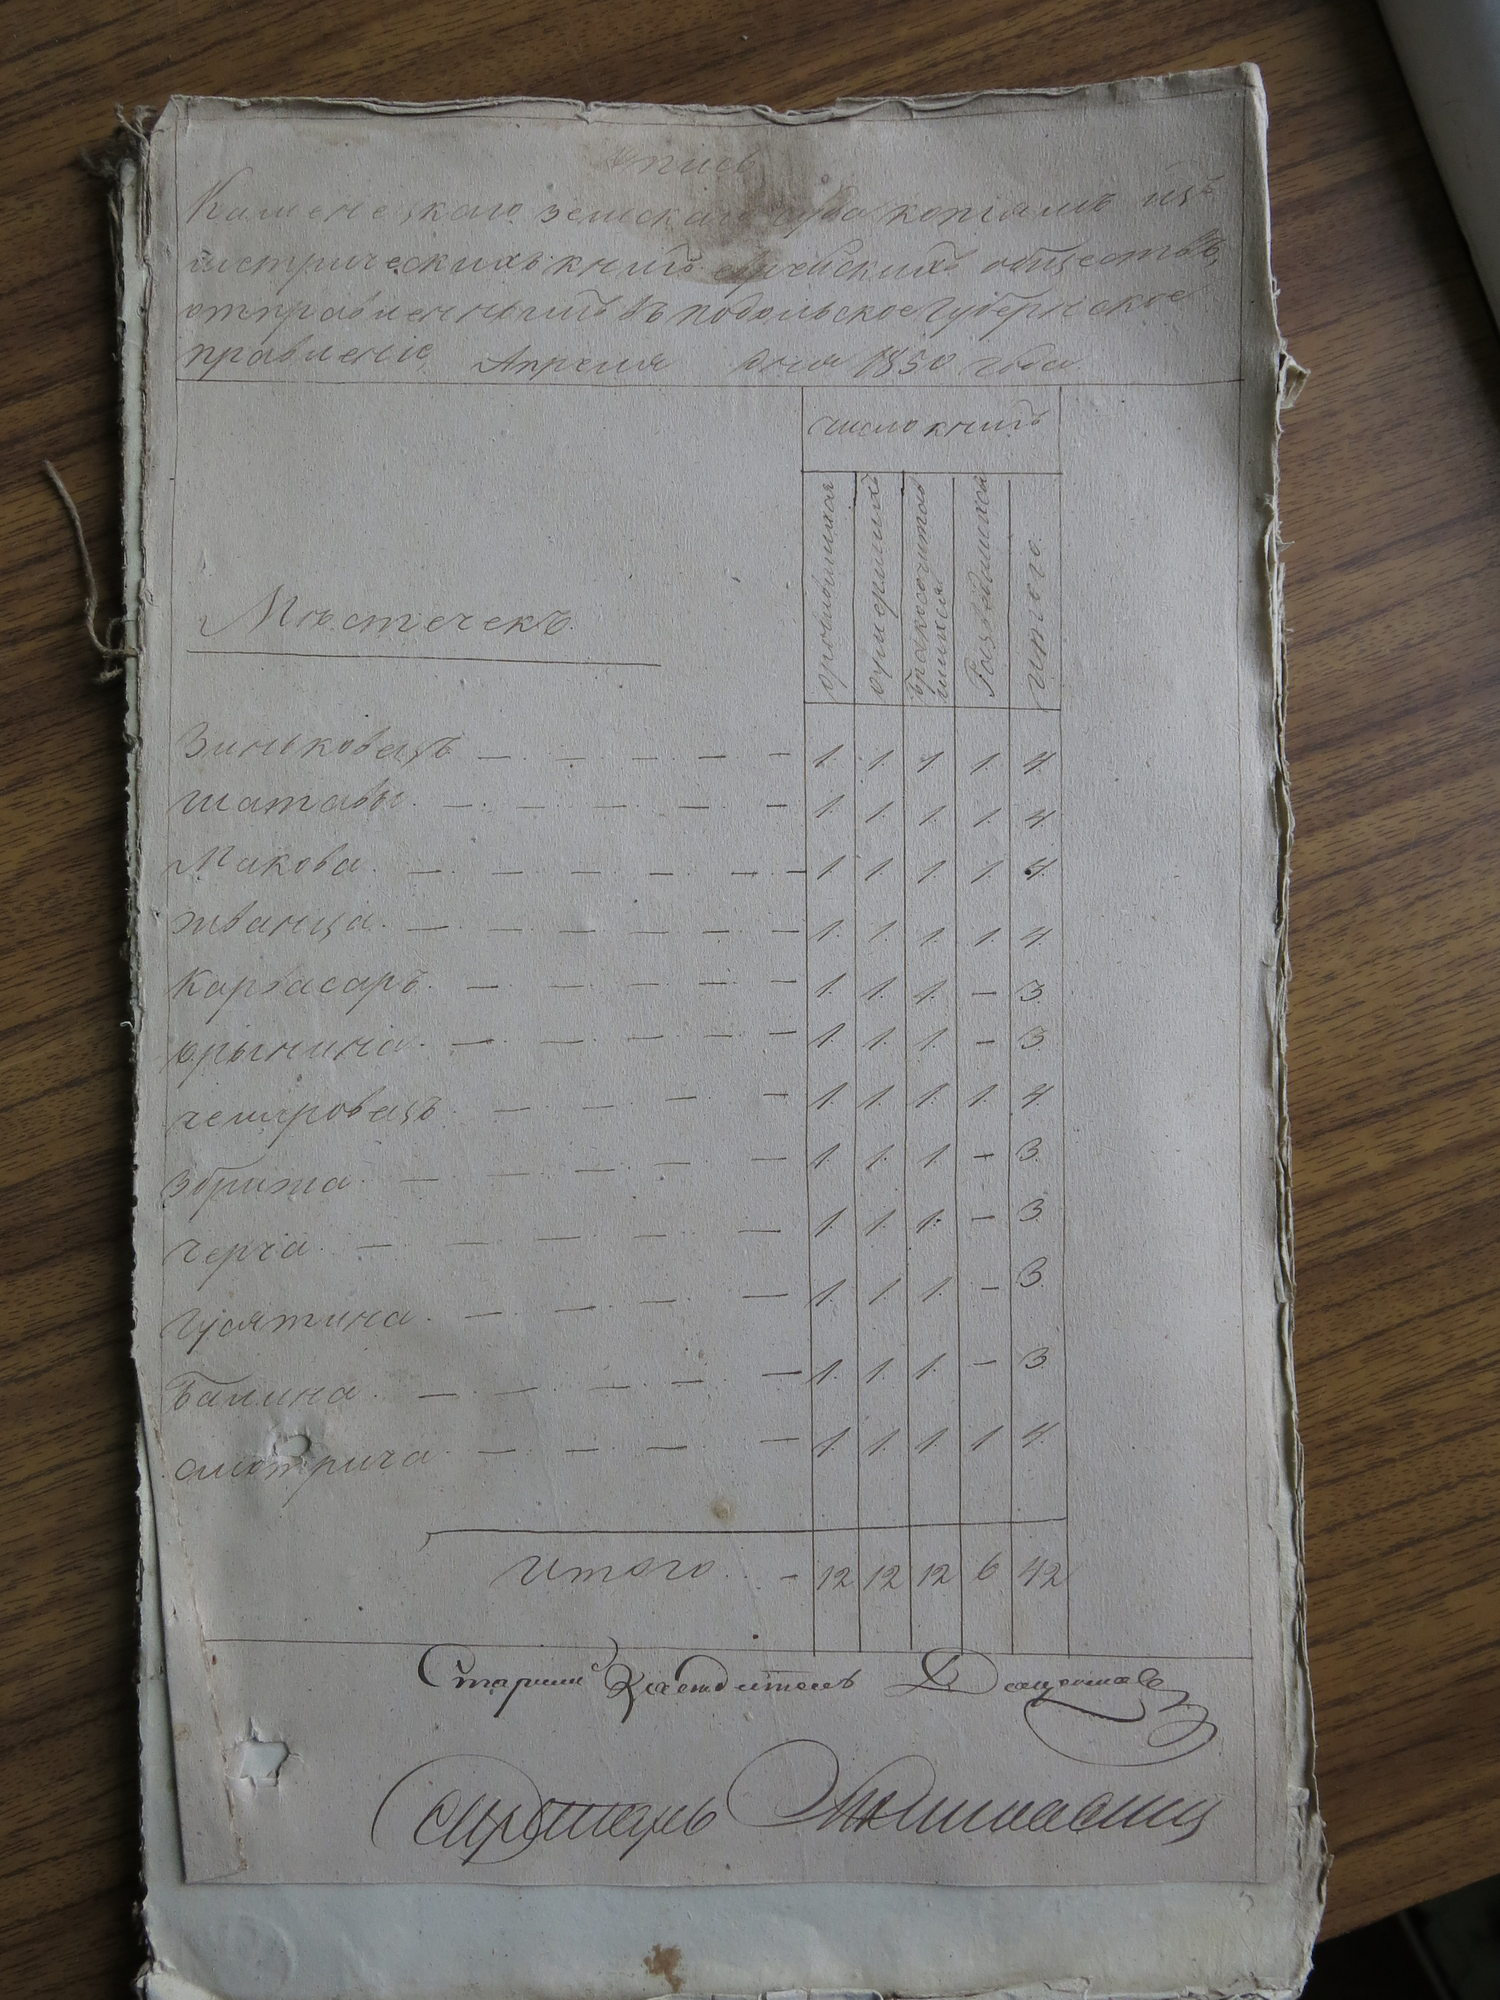 Опись
Каменецкаго земскаго суда копіямъ
метрическихъ книгъ еврейскихъ обществъ,
отправленнымъ въ подольское губернское
правленіе Апреля дня 1850 года
число книгъ
Мѣстечекъ.
умершихъ
бракосочетав
шихся
итого.
Зиньковецъ — — — — — 1. 1. 1. 1. 4.
шатавы. — — — — — 1. 1. 1. 1. 4.
Макова. — — — — — — 1. 1. 1. 1. 4.
жванца. — — — — — — 1. 1. 1. 1. 4.
Карвасаръ. — — — — — 1. 1. 1. — 3.
орынина. — — — — — 1. 1. 1. — 3.
чемировецъ. — — — — 1. 1. 1. 1. 4.
збрижа. — — — — — 1. 1. 1. — 3.
черча. — — — — — 1. 1. 1. — 3.
гусятина. — — — — 1. 1. 1. — 3.
Балина. — — — — — 1. 1. 1. — 3.
смотрича — — — — 1. 1. 1. 1. 4.
итого. — 12 12 12 6 42
Старшій